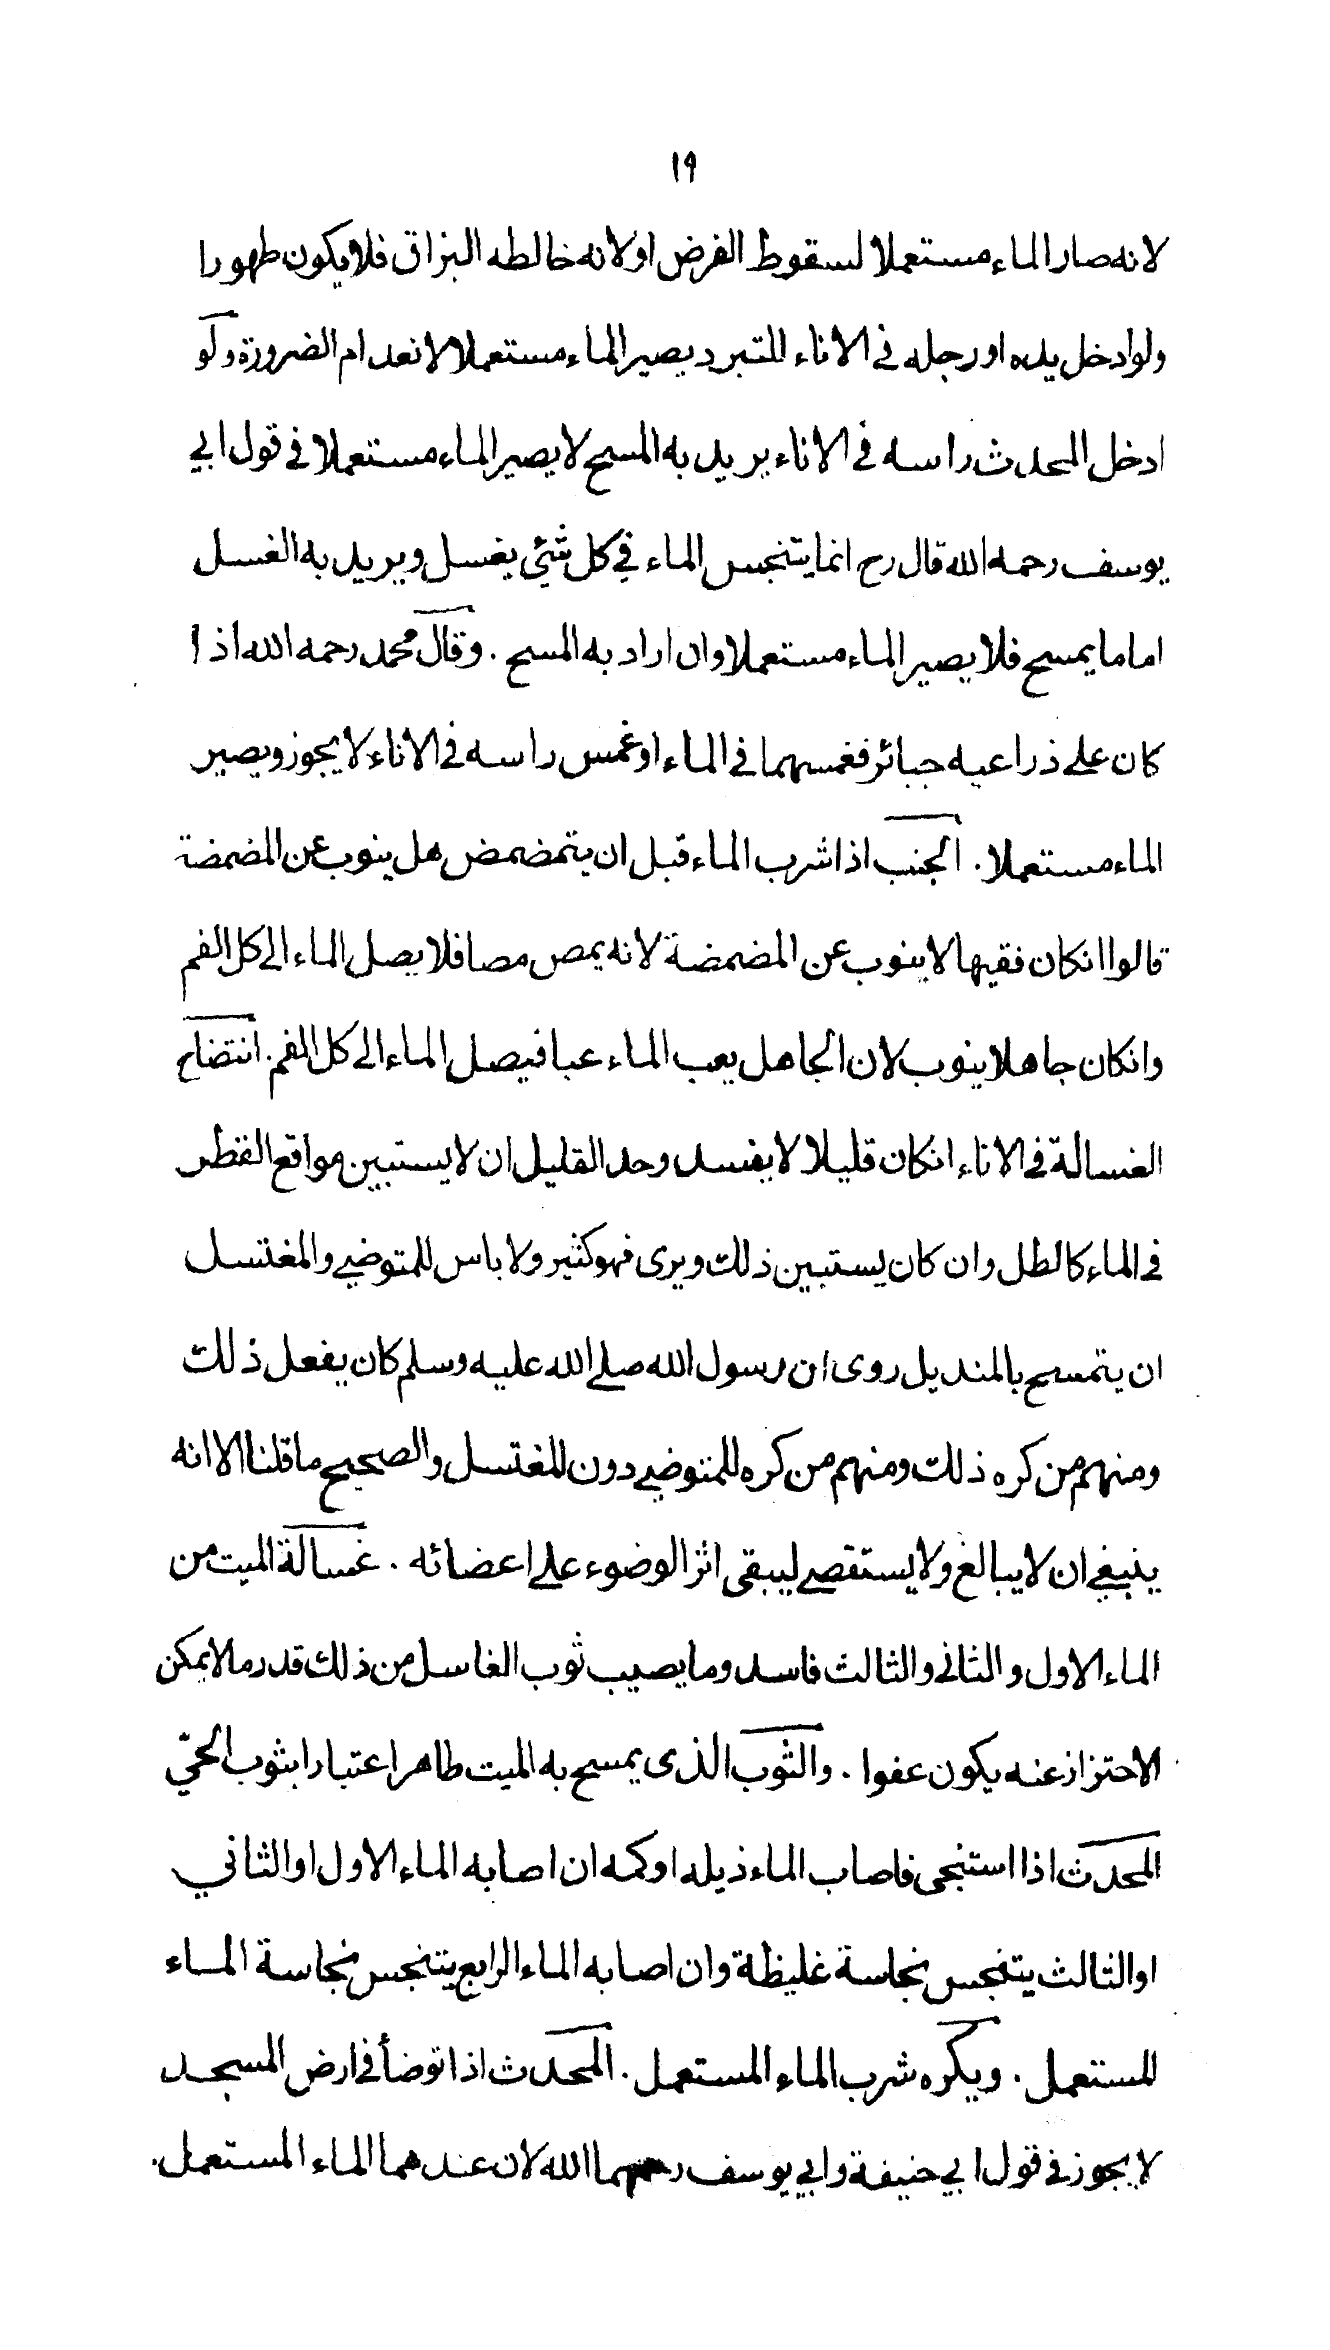 ١٩
لانه صار الماء مستعملا لسقوط الفرض او لانه خالطه البزاق فلا يكون طهورا
ولو ادخل يده او رجله في الاناء للتبرد يصير الماء مستعملا لانعدام الضرورة ولو
ادخل المحدث راسه في الاناء يريد به المسح لا يصير الماء مستعملا في قول ابي
يوسف رحمه الله قال رح انما يتنجس الماء في كل شئي يغسل ويريد به الغسل
اما ما يمسح فلا يصير الماء مستعملا وان اراد به المسح . وقال محمد رحمه الله اذا
كان على ذراعيه جبائر فغمسهما في الماء او غمس راسه في الاناء لا يجوز ويصير
الماء مستعملا . الجنب اذا شرب الماء قبل ان يتمضمض هل ينوب عن المضمضة
قالوا انكان فقيها لا ينوب عن المضمضة لانه يمص مصا فلا يصل الماء الى كل الفم
وانكان جاهلا ينوب لان الجاهل يعب الماء عبا فيصل الماء الى كل الفم . انتضاح
الغسالة في الاناء انكان قليلا لا يفسد وحد القليل ان لا يستبين مواقع القطر
في الماء كالطل وان كان يستبين ذلك ويرى فهو كثير ولا باس للمتوضي والمغتسل
ان يتمسح بالمنديل روى ان رسول الله صلى الله عليه وسلم كان يفعل ذلك
ومنهم من كره ذلك ومنهم من كره للمتوضي دون المغتسل والصحيح ما قلنا الا انه
ينبغي ان لا يبالغ ولا يستقصي ليبقى اثر الوضوء على اعضائه . غسالة الميت من
الماء الاول والثاني والثالث فاسد وما يصيب ثوب الغاسل من ذلك قدر ما لا يمكن
الاحتراز عنه يكون عفوا . والثوب الذى يمسح به الميت طاهر اعتبارا بثوب الحيّ
المحدث اذا استنجى فاصاب الماء ذيله او كمه ان اصابه الماء الاول او الثاني
او الثالث يتنجس نجاسة غليظة وان اصابه الماء الرابع يتنجس نجاسة الماء
المستعمل . ويكره شرب الماء المستعمل . المحدث اذا توضأ في ارض المسجد
لا يجوز في قول ابي حنيفة وابي يوسف رحمهما الله لان عندهما الماء المستعمل .